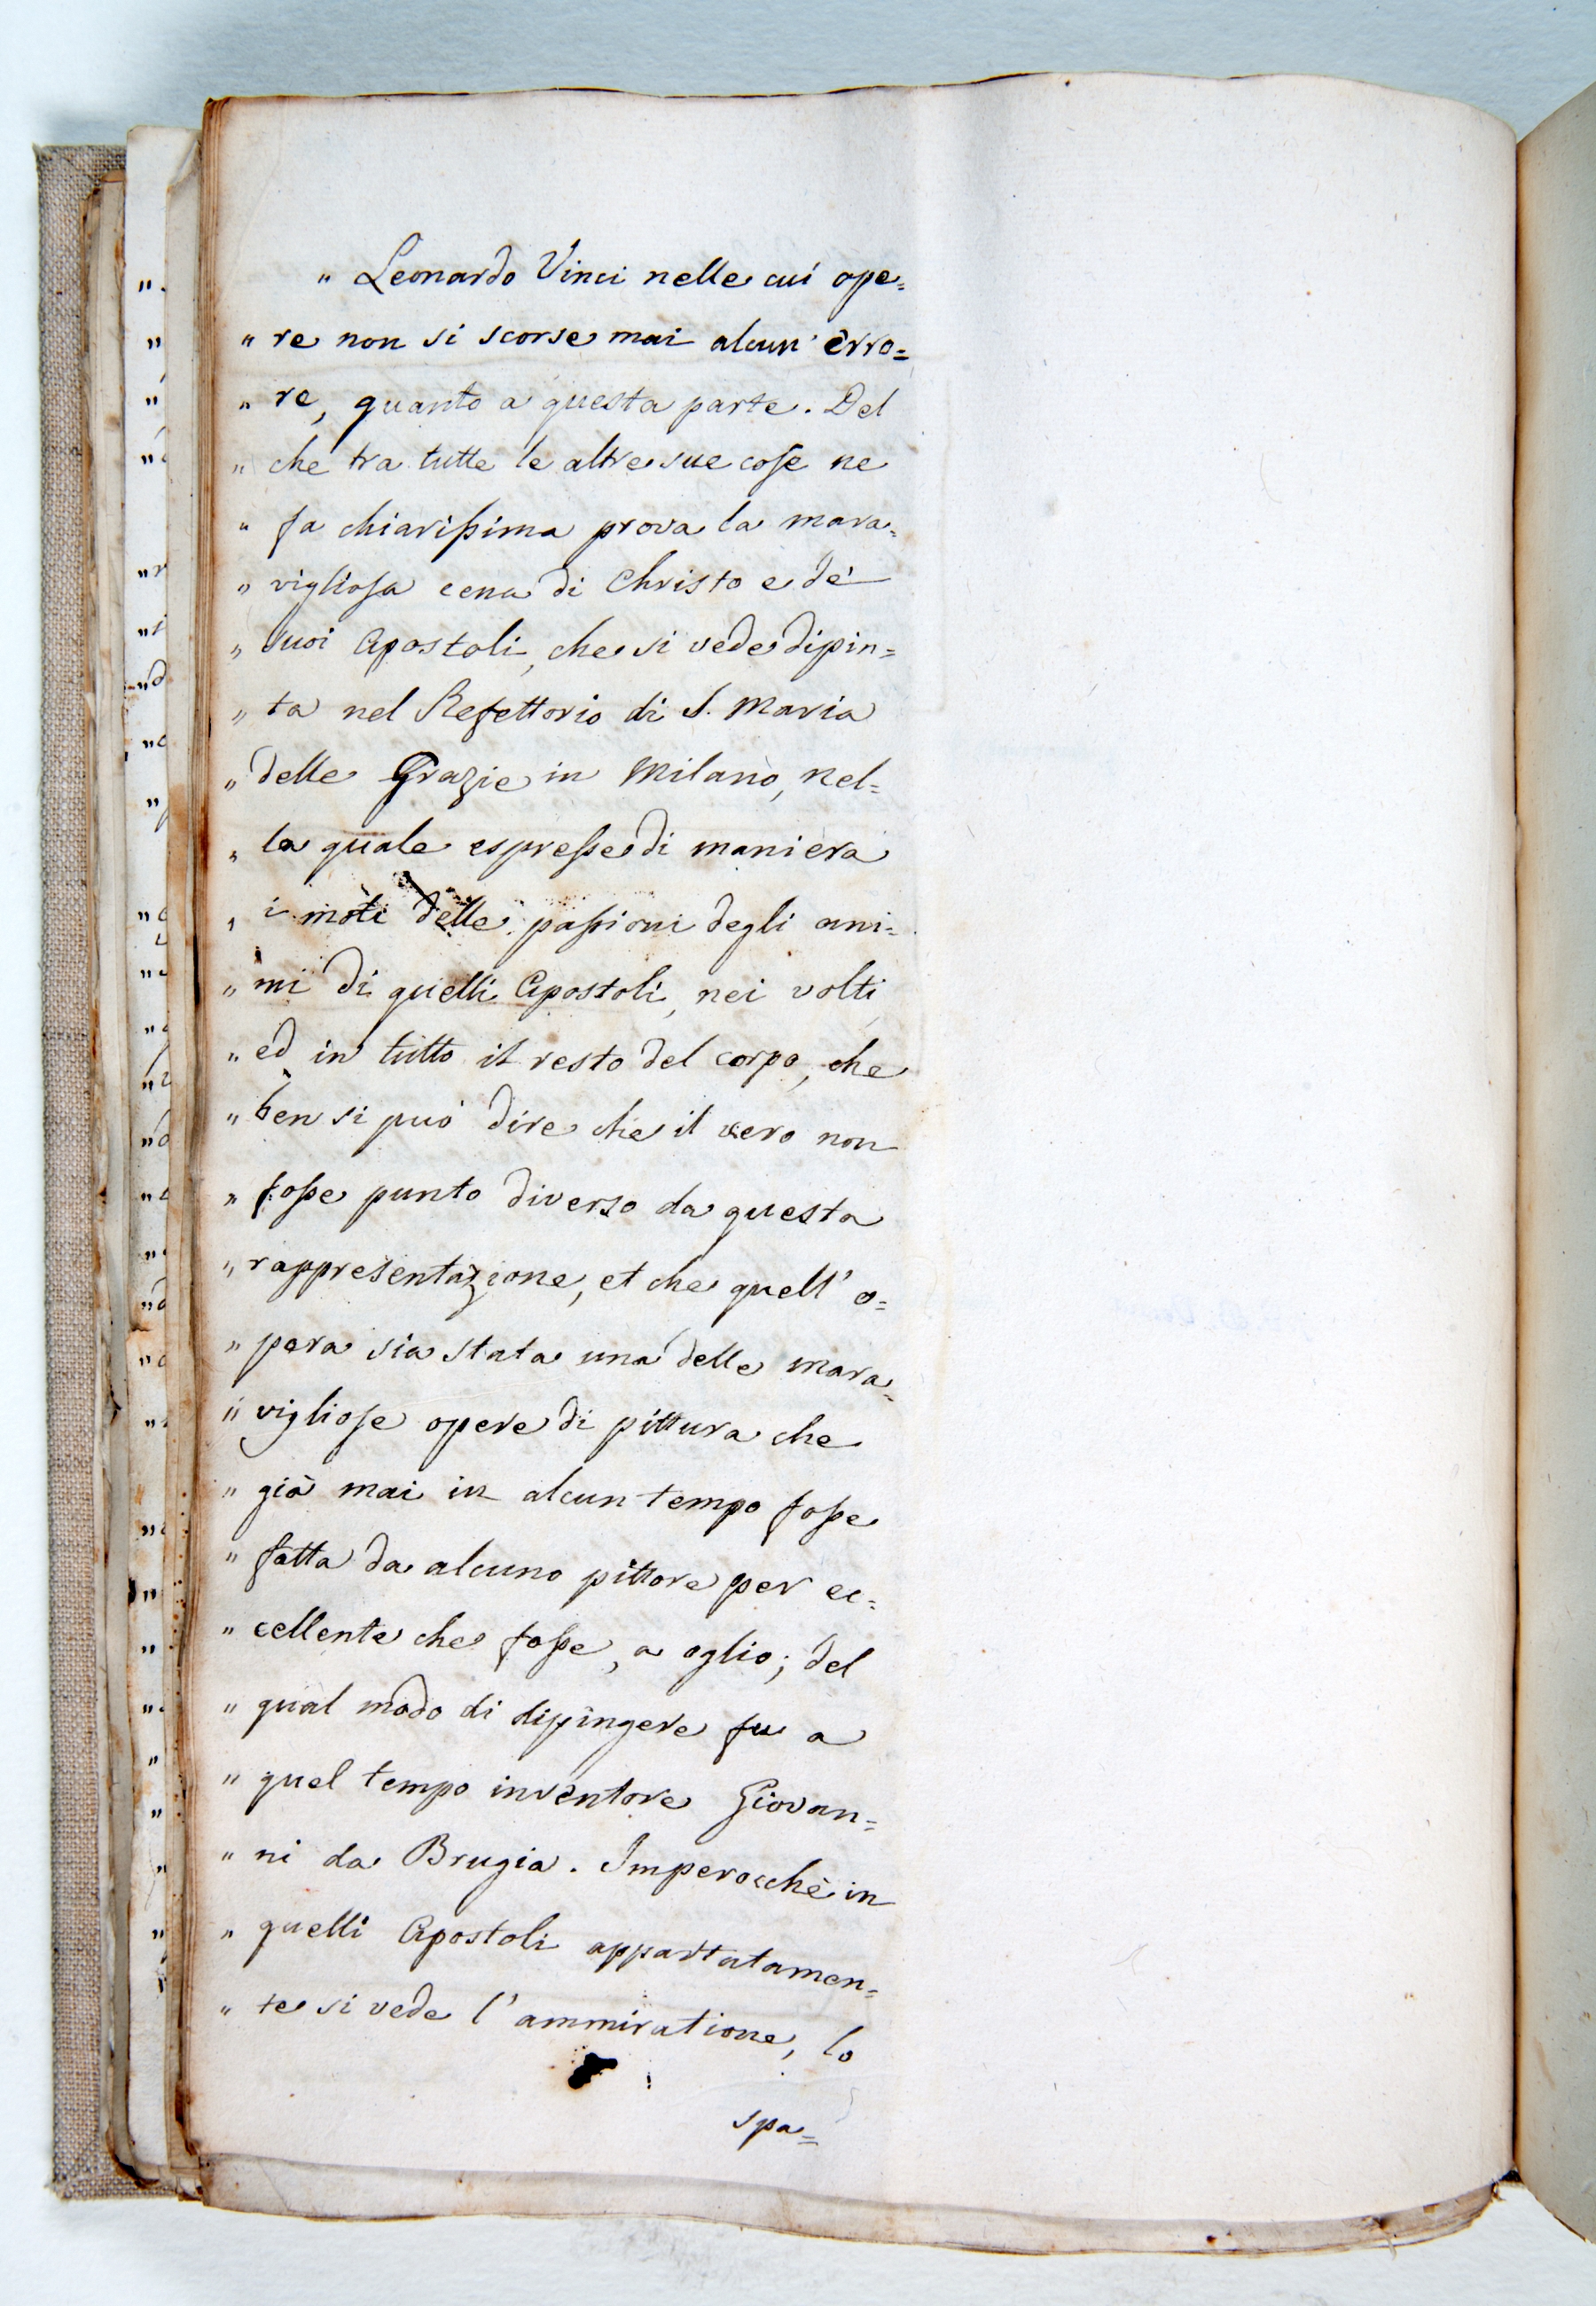 „ Leonardo Vinci nelle cui ope=
„ re non si scorse mai alcun' erro=
„ re, quanto a questa parte. Del
„ che tra tutte le altre sue cose ne
„ fa chiarissima prova la mara=
„ vigliosa cena di Christo e de'
„ suoi Apostoli, che si vede dipin=
„ ta nel Refettorio di S. Maria
„ delle Grazie in Milano, nel=
„ la quale espresse di maniera
„ i moti delle passioni degli ani=
„ mi di quelli Apostoli, nei volti
„ ed in tutto il resto del corpo, che
„ ben si può dire che il vero non
„ fosse punto diverso da questa
„ rappresentazione, et che quell' o=
„ pera sia stata una delle mara=
„ vigliose opere di pittura che
„ già mai in alcun tempo fosse
„ fatta da alcuno pittore per ec=
„ cellente che fosse, a oglio; del
„ qual modo di dipingere fu a
„ quel tempo inventore Giovan=
„ ni da Brugia. Imperocchè in
„ quelli Apostoli appartatamen=
„ te si vede l'ammiratione, lo
spa=